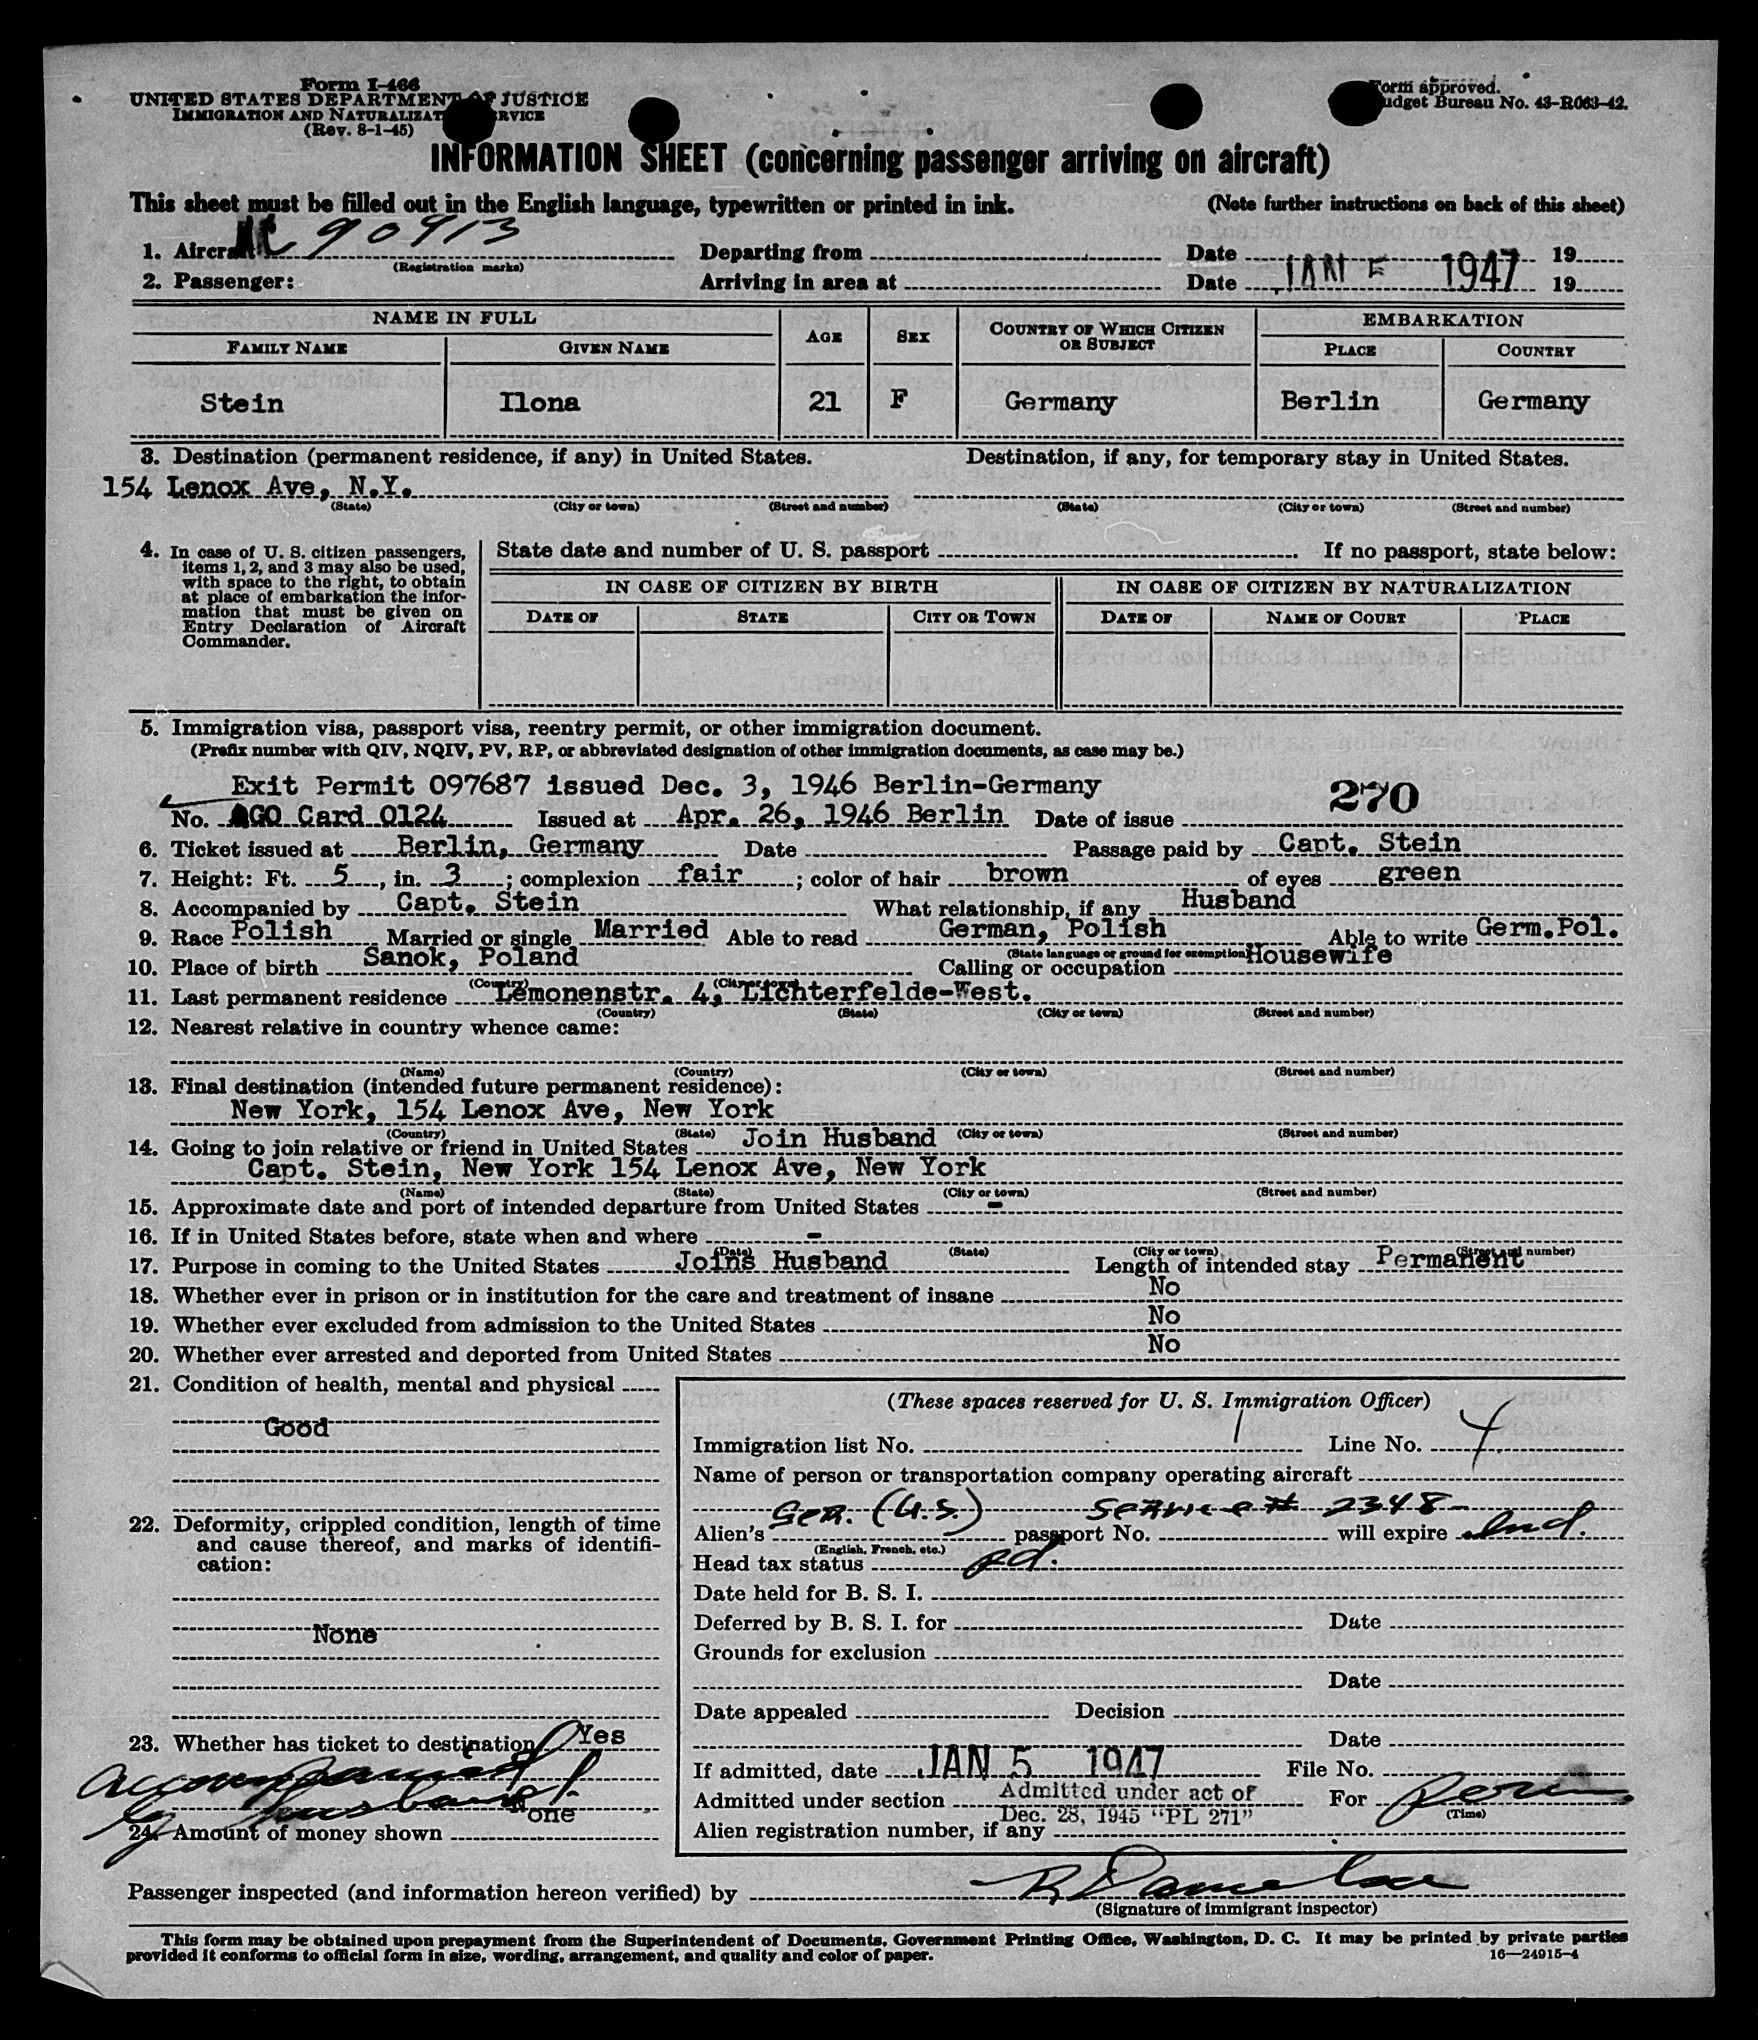 Form I-466
UNITED STATES DEPARTMENT OF JUSTICE
IMMIGRATION AND NATURALIZATION SERVICE
(Rev. 8-1-45)
Form approved.
Budget Bureau No. 43-R063-42.
INFORMATION SHEET (concerning passenger arriving on aircraft)
This sheet must be filled out in the English language, typewritten or printed in ink. (Note further instructions on back of this sheet)
1. Aircraft NC 90913 Departing from Date 19
(Registration marks)
2. Passenger: Arriving in area at Date JAN 5 1947 19
NAME IN FULL AGE SEX COUNTRY OF WHICH CITIZEN OR SUBJECT EMBARKATION
FAMILY NAME GIVEN NAME PLACE COUNTRY
Stein Ilona 21 F Germany Berlin Germany
3. Destination (permanent residence, if any) in United States. Destination, if any, for temporary stay in United States.
154 Lenox Ave, N.Y.
(State) (City or town) (Street and number) (State) (City or town) (Street and number)
4. In case of U. S. citizen passengers,
items 1, 2, and 3 may also be used,
with space to the right, to obtain
at place of embarkation the infor-
mation that must be given on
Entry Declaration of Aircraft
Commander.
State date and number of U. S. passport If no passport, state below:
IN CASE OF CITIZEN BY BIRTH IN CASE OF CITIZEN BY NATURALIZATION
DATE OF STATE CITY OR TOWN DATE OF NAME OF COURT PLACE
5. Immigration visa, passport visa, reentry permit, or other immigration document.
(Prefix number with QIV, NQIV, PV, RP, or abbreviated designation of other immigration documents, as case may be.)
Exit Permit 097687 issued Dec. 3, 1946 Berlin-Germany 270
No. AGO Card 0124 Issued at Apr. 26, 1946 Berlin Date of issue
6. Ticket issued at Berlin, Germany Date Passage paid by Capt. Stein
7. Height: Ft. 5, in. 3; complexion fair; color of hair brown of eyes green
8. Accompanied by Capt. Stein What relationship, if any Husband
9. Race Polish Married or single Married Able to read German, Polish Able to write Germ.Pol.
(State language or ground for exemption)
10. Place of birth Sanok, Poland Calling or occupation Housewife
(Country) (City or town)
11. Last permanent residence Lemonenstr. 4, Lichterfelde-West.
(Country) (State) (City or town) (Street and number)
12. Nearest relative in country whence came:
(Name) (Country) (City or town) (Street and number)
13. Final destination (intended future permanent residence):
New York, 154 Lenox Ave, New York
(Country) (State) (City or town) (Street and number)
14. Going to join relative or friend in United States Join Husband
Capt. Stein, New York 154 Lenox Ave, New York
(Name) (State) (City or town) (Street and number)
15. Approximate date and port of intended departure from United States -
16. If in United States before, state when and where -
(Date) (State) (City or town) (Street and number)
17. Purpose in coming to the United States Joins Husband Length of intended stay Permanent
18. Whether ever in prison or in institution for the care and treatment of insane No
19. Whether ever excluded from admission to the United States No
20. Whether ever arrested and deported from United States No
21. Condition of health, mental and physical
Good
22. Deformity, crippled condition, length of time
and cause thereof, and marks of identifi-
cation:
None
23. Whether has ticket to destination Yes
accompanied
by husband
None
24. Amount of money shown
(These spaces reserved for U. S. Immigration Officer)
Immigration list No. 1 Line No. 4
Name of person or transportation company operating aircraft
Ger. (U.S.) Service # 2348
Alien's passport No. will expire Ind.
(English, French, etc.)
Head tax status pd.
Date held for B. S. I.
Deferred by B. S. I. for Date
Grounds for exclusion
Date
Date appealed Decision
Date
If admitted, date JAN 5 1947 File No.
Admitted under section Admitted under act of For Perm.
Dec. 28, 1945 "PL 271" (Time)
Alien registration number, if any
Passenger inspected (and information hereon verified) by
(Signature of immigrant inspector)
This form may be obtained upon prepayment from the Superintendent of Documents, Government Printing Office, Washington, D. C. It may be printed by private parties
provided it conforms to official form in size, wording, arrangement, and quality and color of paper. 16—24915-4